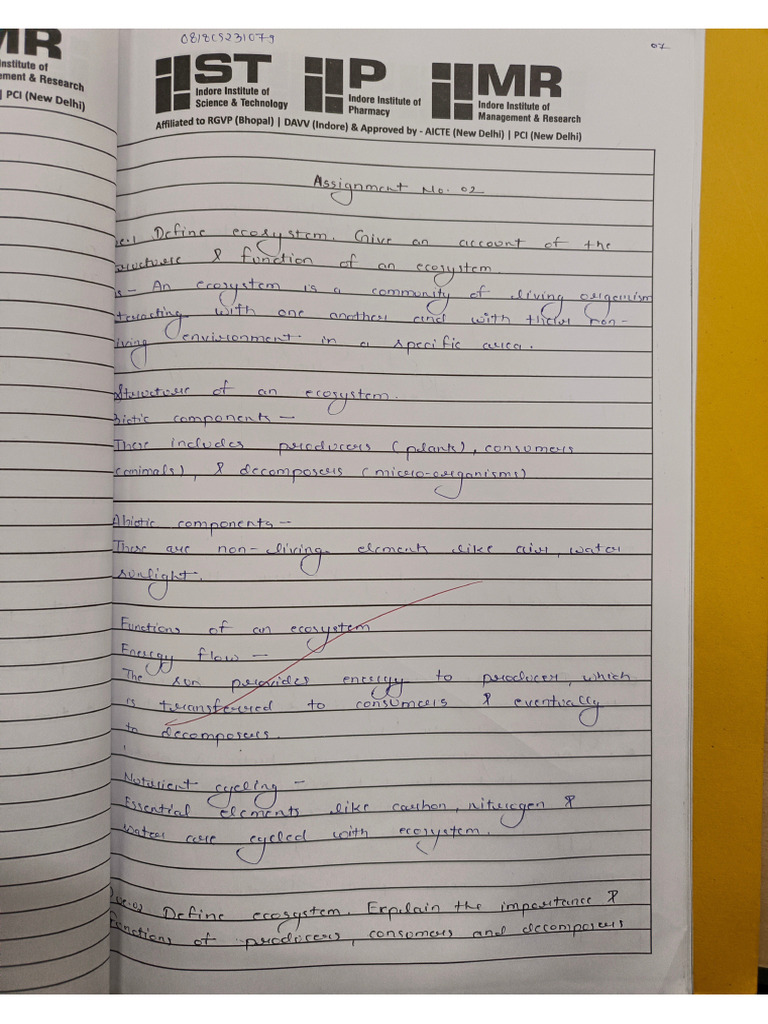 MR
Institute of
ement & Research
| PCI (New Delhi)
0818CS231079
07
IIST
Indore Institute of
Science & Technology
IIP
Indore Institute of
Pharmacy
IIMR
Indore Institute of
Management & Research
Affiliated to RGVP (Bhopal) | DAVV (Indore) & Approved by - AICTE (New Delhi) | PCI (New Delhi)
Assignment No. 02
ue.1 Define ecosystem. Give an account of the
structure & function of an ecosystem.
s- An ecosystem is a community of living origenism
teracting with one another and with their non-
iving environment in a specific area.
Structure of an ecosystem.
Biotic components -
These includes producers (plants), consumers
(animals), & decomposers (micro-organisms)
Abiotic components -
These are non-living elements like air, water
sunlight.
Functions of an ecosystem
Energy flow -
The sun provides energy to producer, which
is transferred to consumers & eventually
to decomposers.
Nutrient cycling -
Essential elements like carbon, nitrogen &
water are cycled with ecosystem.
Que.02 Define ecosystem. Explain the importance &
functions of producers, consumers and decomposers